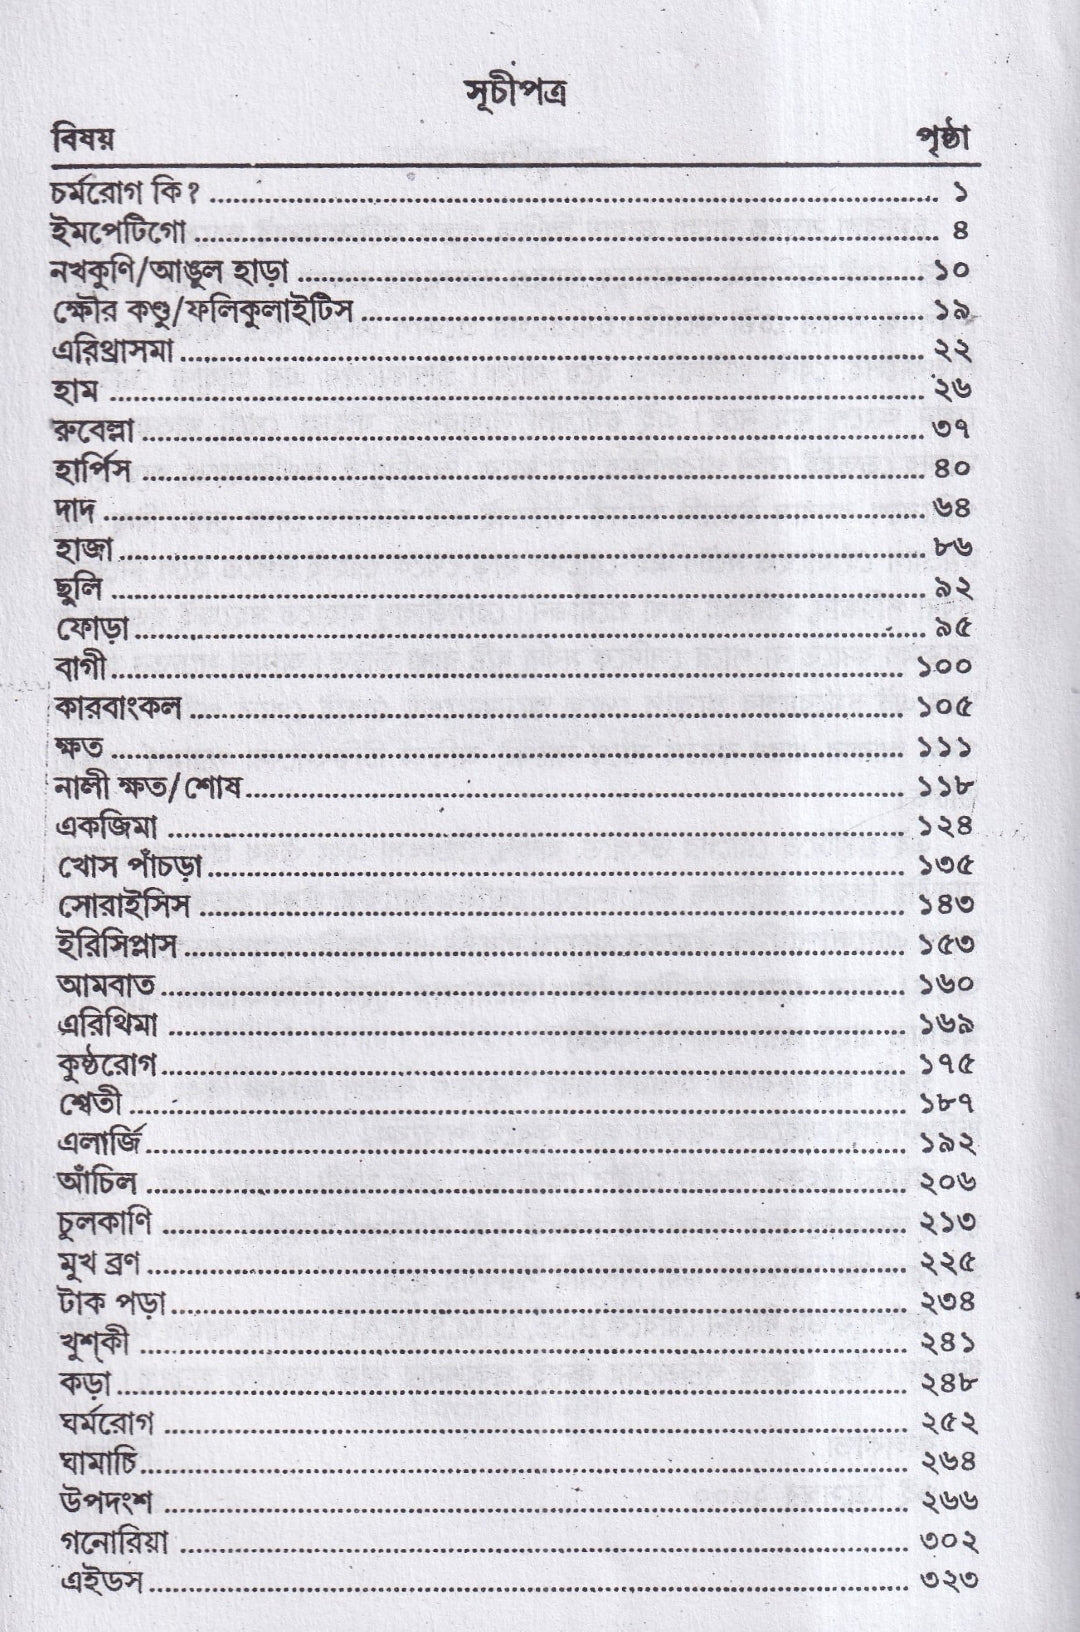 সূচীপত্র
বিষয় পৃষ্ঠা
চর্মরোগ কি? ........ ১
ইমপেটিগো ........ ৪
নখকুণি/আঙুল হাড়া ........ ১০
ক্ষৌর কণ্ডু/ফলিকুলাইটিস ........ ১৯
এরিথ্রাসমা ........ ২২
হাম ........ ২৬
রুবেল্লা ........ ৩৭
হার্পিস ........ ৪০
দাদ ........ ৬৪
হাজা ........ ৮৬
ছুলি ........ ৯২
ফোড়া ........ ৯৫
বাগী ........ ১০০
কারবাংকল ........ ১০৫
ক্ষত ........ ১১১
নালী ক্ষত/শোষ ........ ১১৮
একজিমা ........ ১২৪
খোস পাঁচড়া ........ ১৩৫
সোরাইসিস ........ ১৪৩
ইরিসিপ্লাস ........ ১৫৩
আমবাত ........ ১৬০
এরিথিমা ........ ১৬৯
কুষ্ঠরোগ ........ ১৭৫
শ্বেতী ........ ১৮৭
এলার্জি ........ ১৯২
আঁচিল ........ ২০৬
চুলকাণি ........ ২১৩
মুখ ব্রণ ........ ২২৫
টাক পড়া ........ ২৩৪
খুশ্‌কী ........ ২৪১
কড়া ........ ২৪৮
ঘর্মরোগ ........ ২৫২
ঘামাচি ........ ২৬৪
উপদংশ ........ ২৬৬
গনোরিয়া ........ ৩০২
এইডস ........ ৩২৩